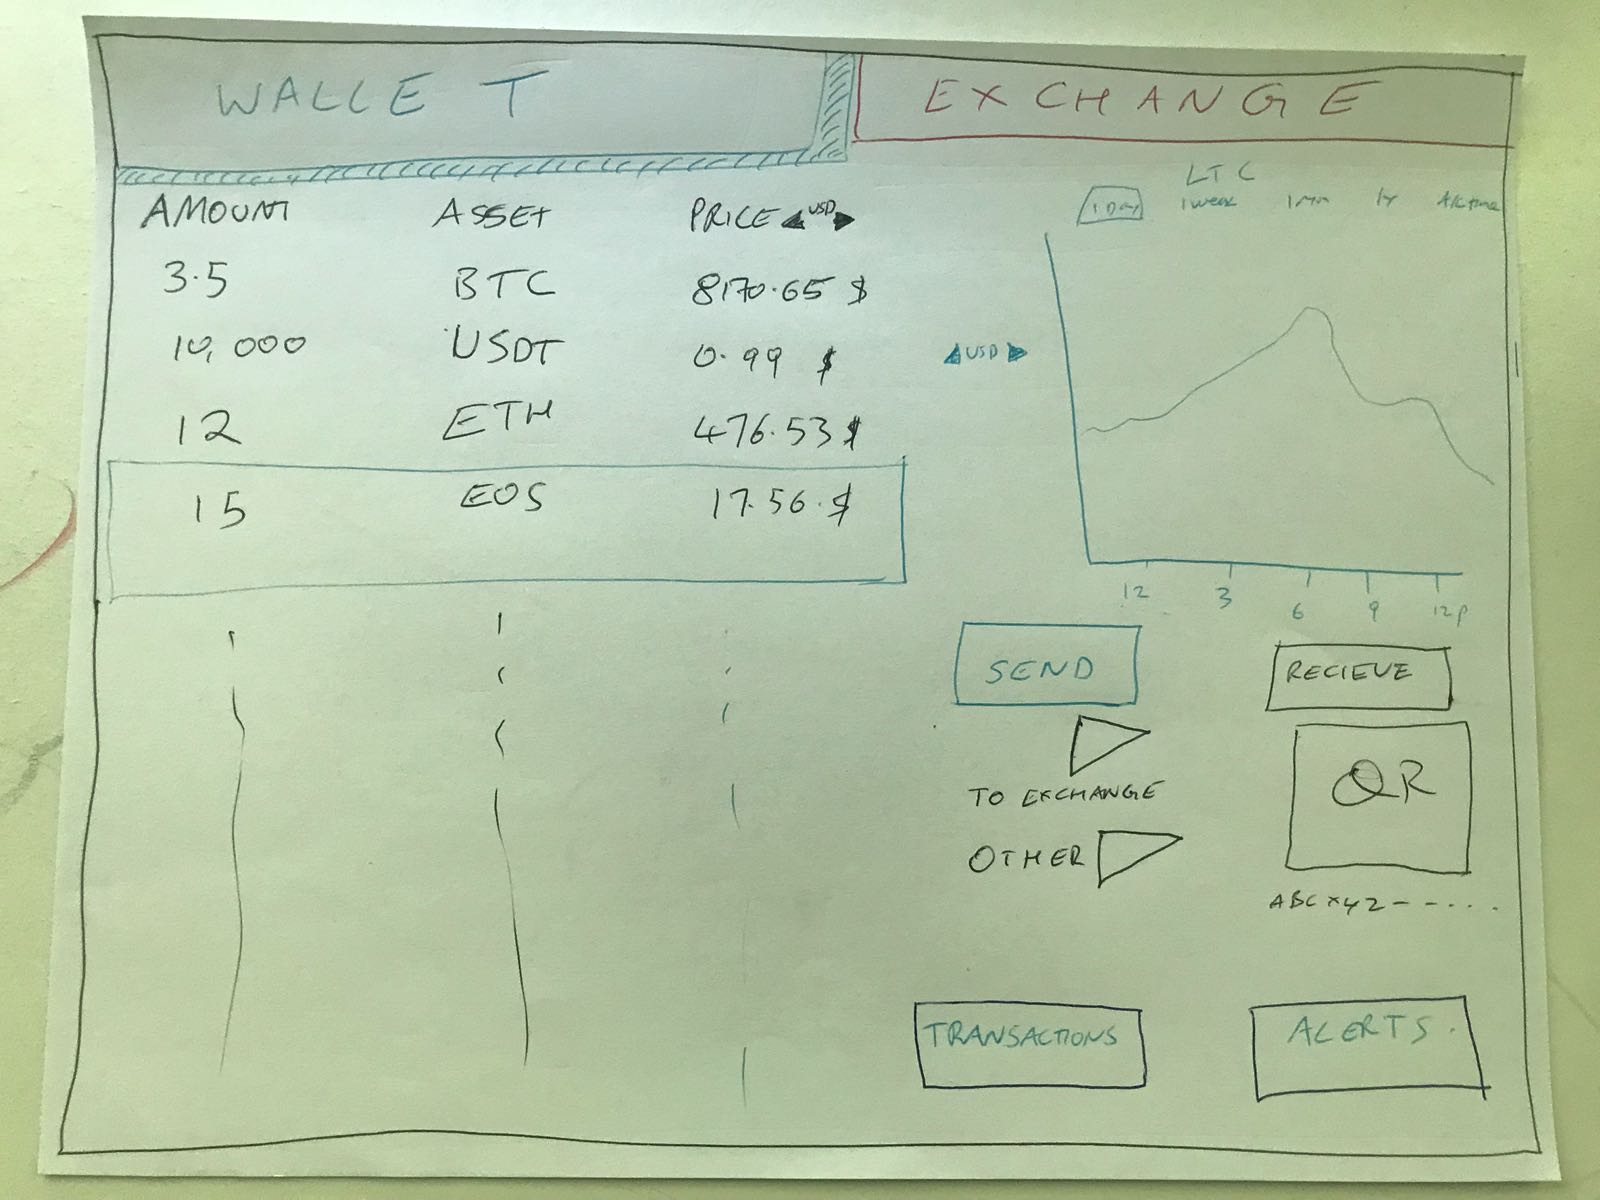 WALLET
EXCHANGE
AMOUNT ASSET PRICE ◀USD▶
3.5 BTC 8170.65 $
10,000 USDT 0.99 $
12 ETH 476.53 $
15 EOS 17.56.$
LTC
1 Day 1 week 1 mn 1Y All time
◀USD▶
12 3 6 9 12p
SEND
TO EXCHANGE
OTHER
RECIEVE
QR
ABCXYZ------
TRANSACTIONS
ALERTS.